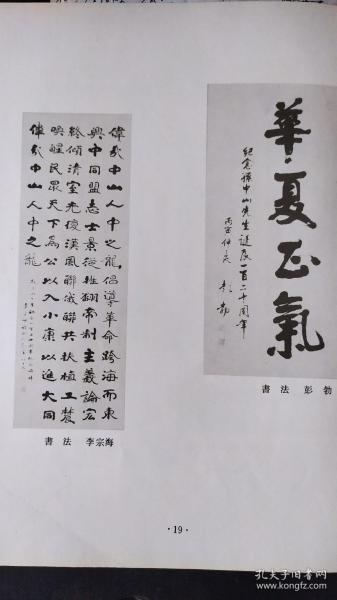 華夏正氣
紀念孫中山先生誕辰一百二十周年
丙寅仲辰 彭勃
書法 彭勃
偉哉中山人中之龍倡導革命跨海而東
興中同盟志士景從推翻帝制主義論宏
終傾清室光復漢風聯俄聯共扶植工農
喚醒民眾天下為公以入小康以進大同
偉哉中山人中之龍
書法 李宗海
·19·
孔夫子旧书网